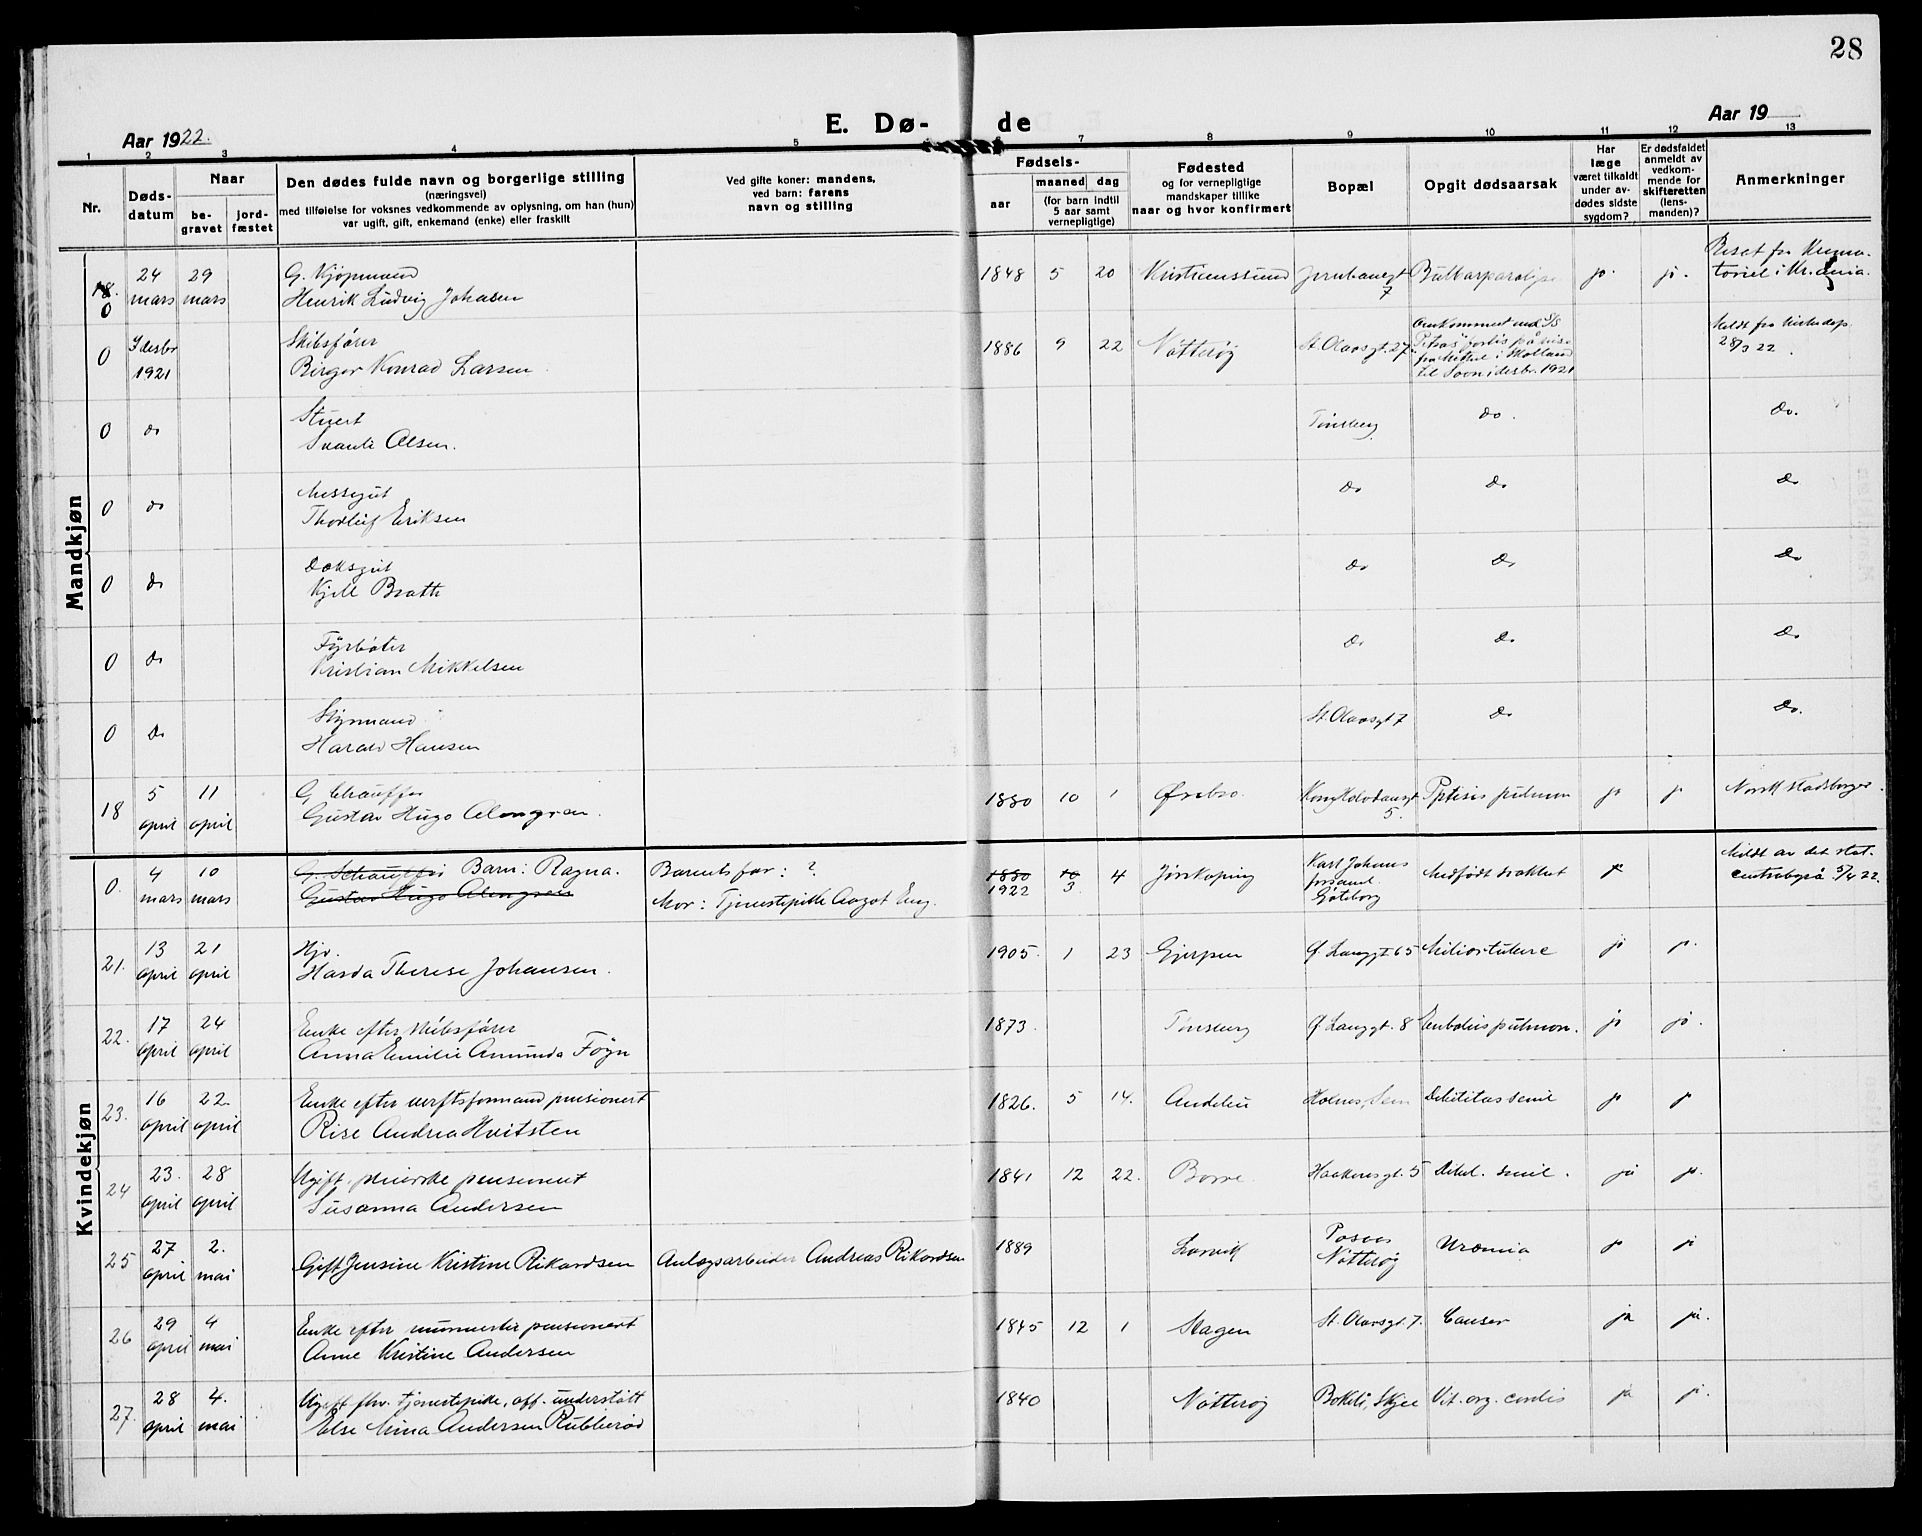 28
Aar 1922.
E. Dø-
de
Aar 19
1 2 3 4 5 7 8 9 10 11 12 13
Nr.
Døds-
datum
Naar
be-
gravet
jord-
fæstet
Den dødes fulde navn og borgerlige stilling
(næringsvei)
med tilføielse for voksnes vedkommende av oplysning, om han (hun)
var ugift, gift, enkemand (enke) eller fraskilt
Ved gifte koner: mandens,
ved barn: farens
navn og stilling
Fødsels-
aar
maaned
dag
(for barn indtil
5 aar samt
vernepligtige)
Fødested
og for vernepligtige
mandskaper tillike
naar og hvor konfirmert
Bopæl
Opgit dødsaarsak
Har
læge
været tilkaldt
under av-
dødes sidste
sygdom?
Er dødsfaldet
anmeldt av
vedkom-
mende for
skifteretten
(lens-
manden)?
Anmerkninger
Mandkjøn
18.
0
24
mars
29
mars
G. Kjøpmand
Henrik Ludvig Johnsen
1848 5 20 Kristianssund Jernbanegt
7
ja ja.
0
1921
Skibsfører
Birger Konrad Larsen
1886 9 22 Nøtterøy St. Olavsgt. 27
til Soon i desbr. 1921
28/3 22.
0 do
Stuert
Svante Olsen.
Tønsberg do. do.
0 do
Messegut
Thorleif Eriksen
do do do
0 do
Dæksgut
Kjell Bratt
do do do
0 do
Fyrbøter
Kristian Mikkelsen
do do do
0 do
Styrmand
Harald Hansen
St. Olavsgt 7 do do.
18
5
april
11
april
G. Chauffør
Gustav Hugo Almgren.
1880 10 1 Ørebro. Kong Halvdansgt
5.
Pptisis pulmon ja ja Norsk statsborger.
Kvindekjøn
0.
4
mars
10
mars
G. Schauffør Barn: Ragna.
Gustav Hugo Almgren
Barnets far: ?
Mor: Tjenestepike Aagot Eng.
1880 10
1922 3 4 Jönköping
Karl Johans
forsaml.
Göteborg
Medfødt svakhet ja
Meldt av det stat.
centralbyrå 5/4 22.
21.
13
april
21
april
Hjv.
Hasda Therese Johansen.
1905. 1 23 Gjerpen Ø. Langgt 65 Miliartuberc ja ja.
22.
17
april
24
april
Enke efter skibsfører
Anna Emilie Amunda Föyn
1873. Tønsberg Ø. Langgt. 8 Embolus pulmon. ja ja.
23.
16
april
22.
april
Enke efter verftsformand pensionert
Rise Andrea Hvitsten
1826. 5 14. Holmes, Sem Debilitas senil ja ja
24
23.
april
28
april
Ugift, pensionert
Susanna Andersen
1841 12 22. Borre. Haakonsgt. 5 Debil. senil. ja ja.
25
27
april
2.
mai
Gift Jensine Kristine Rikardsen Anlægsarbeider Andreas Rikardsen
1889 Larvik
Nøtterøy
Uræmia ja ja
26
29
april
4
mai
Enke efter murmester pensionert
Anne Kristine Andersen
1845 12 1 Slagen St. Olavsgt. 7. Cancer ja ja.
27.
28
april
4.
mai
Ugift fhv. tjenestepike, off. understøtt
Else Mina Andersen Rubberød
1840 Nøtterøy Bokeli, Skjee Vit. org. cordis ja ja.